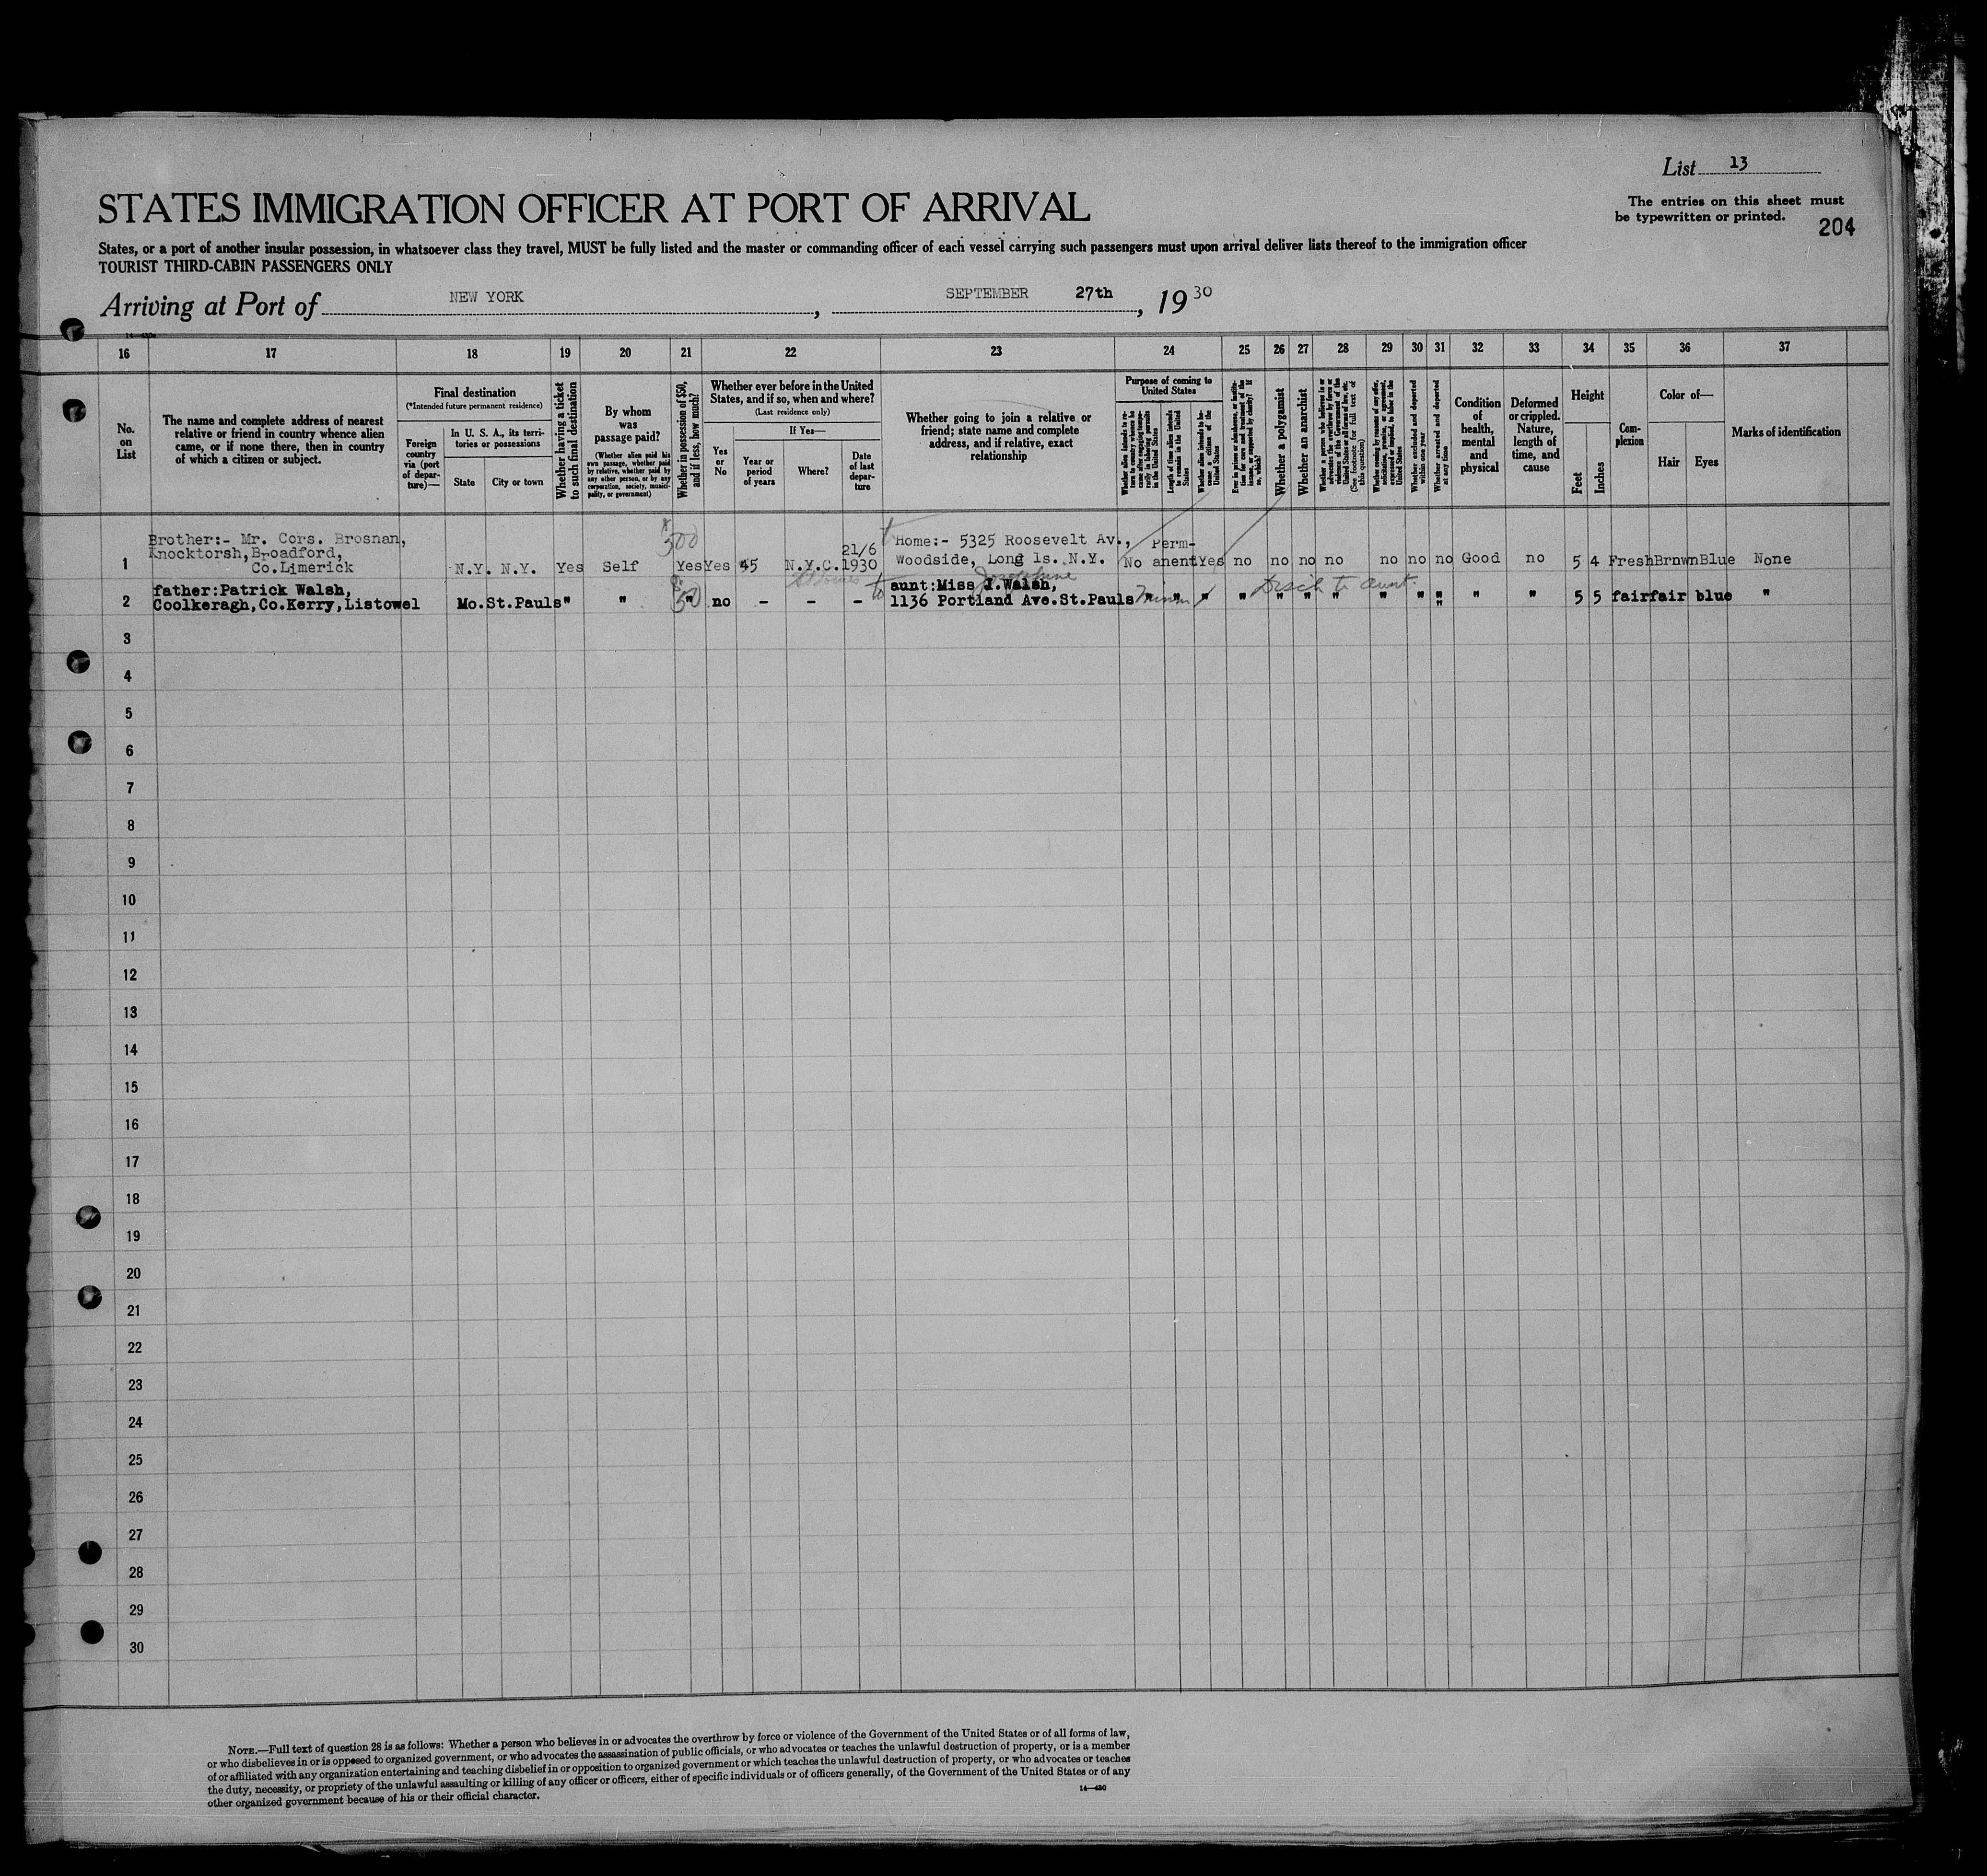 List 13
The entries on this sheet must
be typewritten or printed.
204
STATES IMMIGRATION OFFICER AT PORT OF ARRIVAL
States, or a port of another insular possession, in whatsoever class they travel, MUST be fully listed and the master or commanding officer of each vessel carrying such passengers must upon arrival deliver lists thereof to the immigration officer
TOURIST THIRD-CABIN PASSENGERS ONLY
Arriving at Port of NEW YORK, SEPTEMBER 27th, 1930
16 17 18 19 20 21 22 23 24 25 26 27 28 29 30 31 32 33 34 35 36 37
No.
on
List
The name and complete address of nearest
relative or friend in country whence alien
came, or if none there, then in country
of which a citizen or subject.
Final destination
(*Intended future permanent residence)
Foreign
country
via (port
of depar-
ture)—
In U. S. A., its terri-
tories or possessions
State
City or town
Whether having a ticket
to such final destination
By whom
was
passage paid?
(Whether alien paid his
own passage, whether paid
by relative, whether paid by
any other person, or by any
corporation, society, munici-
pality, or government)
Whether in possession of $50,
and if less, how much?
Whether ever before in the United
States, and if so, when and where?
(Last residence only)
Yes
or
No
If Yes—
Year or
period
of years
Where?
Date
of last
depar-
ture
Whether going to join a relative or
friend; state name and complete
address, and if relative, exact
relationship
Purpose of coming to
United States
Whether alien intends to re-
turn to country whence he
came after engaging tempo-
rarily in laboring pursuits
in the United States
Length of time alien intends
to remain in the United
States
Whether alien intends to be-
come a citizen of the
United States
Ever in prison or almshouse, or institu-
tion for care and treatment of the
insane, or supported by charity? If
so, which?
Whether a polygamist
Whether an anarchist
Whether a person who believes in or
advocates the overthrow by force or
violence of the Government of the
United States or all forms of law, etc.
(See footnote for full text of
this question)
Whether coming by reason of any offer,
solicitation, promise, or agreement,
expressed or implied, to labor in the
United States
Whether excluded and deported
within one year
Whether arrested and deported
at any time
Condition
of
health,
mental
and
physical
Deformed
or crippled.
Nature,
length of
time, and
cause
Height
Feet
Inches
Com-
plexion
Color of—
Hair
Eyes
Marks of identification
Brother:- Mr. Cors. Brosnan,
Knocktorsh, Broadford,
Co.Limerick
1 N.Y. N.Y. Yes Self 500 Yes Yes 45 N.Y.C. 21/6 1930
Home:- 5325 Roosevelt Av.,
Woodside, Long Is. N.Y.
No Perm-
anent Yes no no no no no no no Good no 5 4 Fresh Brnwn Blue None
father:Patrick Walsh,
2 Coolkeragh,Co.Kerry,Listowel Mo. St.Pauls " " 50 " no - - - to
Josephine
aunt:Miss J.Walsh,
1136 Portland Ave.St.Pauls Minn
" " " " " " " " " " " " 5 5 fair fair blue "
Disch to aunt.
3
4
5
6
7
8
9
10
11
12
13
14
15
16
17
18
19
20
21
22
23
24
25
26
27
28
29
30
NOTE.—Full text of question 28 is as follows: Whether a person who believes in or advocates the overthrow by force or violence of the Government of the United States or of all forms of law,
or who disbelieves in or is opposed to organized government, or who advocates the assassination of public officials, or who advocates or teaches the unlawful destruction of property, or is a member
of or affiliated with any organization entertaining and teaching disbelief in or opposition to organized government or which teaches the unlawful destruction of property, or who advocates or teaches
the duty, necessity, or propriety of the unlawful assaulting or killing of any officer or officers, either of specific individuals or of officers generally, of the Government of the United States or of any
other organized government because of his or their official character.
14—430